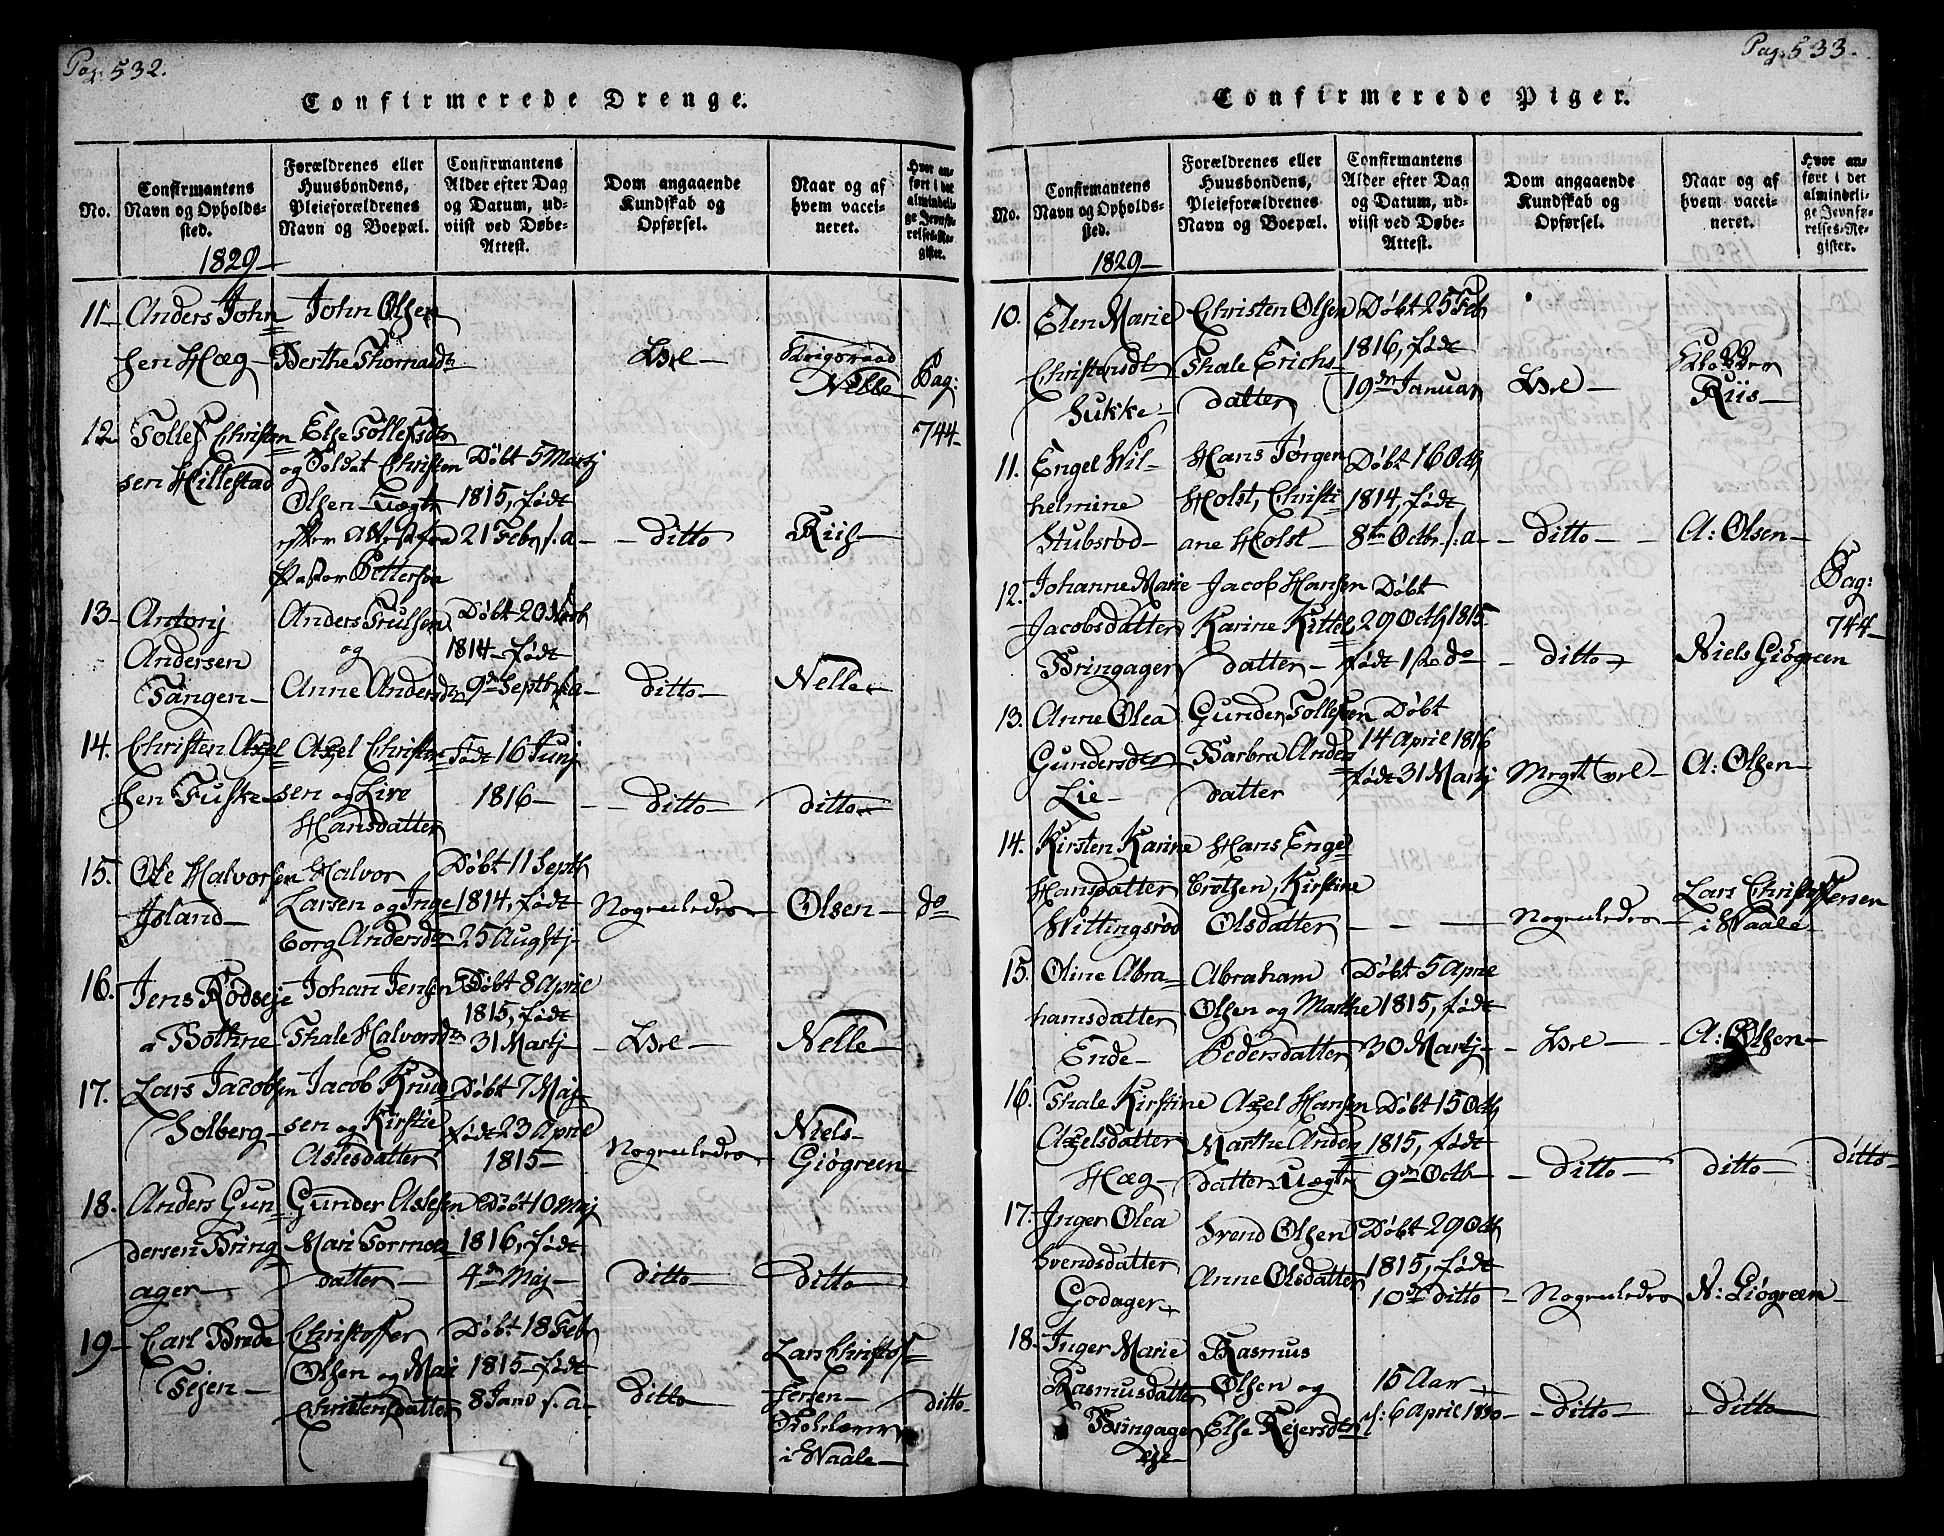 Pag. 532.
Confirmerede Drenge.
No.
Confirmantens
Navn og Opholds-
sted.
1829
Forældrenes eller
Huusbondens,
Pleieforældrenes
Navn og Boepæl.
Confirmantens
Alder efter Dag
og Datum, ud-
viist ved Døbe-
Attest.
Dom angaaende
Kundskab og
Opførsel.
Naar og af
hvem vacci-
neret.
Hvor an-
ført i det
almindeli-
ge Jevnfø-
relses-Re-
gister.
11
Anders John
sen Hæg
John Olsen
Berthe Thomasdtr
Nelle
Pag:
744
12
Tollef Christen
sen Hillestad
Else Tollefsdtr
og Soldat Christen
Olsen
efter Attest fra
Pastor
Døbt 5 Martj
1815, født
21 Febr. s. a
ditto
Riis
13
Antonj
Andersen
Tangen
Anders Trulsen
og
Anne Andersdtr
1814 født
9de Septb s. a
ditto
Nelle
14.
Christen Axel
sen Fuske
Axel Christen
sen og Live
Hansdatter
Født 16 Junj
1816
ditto
ditto
15.
Ole Halvorsen
Island
Halvor
Larsen og Inge
borg Andersdtr
Døbt 11 Septb
1814, født
25 Augstj
Olsen
do
16.
Jens Rødseje
a Bothne
Johan Jensen
Thale Halvorsdtr
Døbt 8 April
1815, født
31 Martj
Nelle
17.
Lars Jacobsen
Solberg
Jacob Knud
sen og Kirstie
Aslesdatter
Døbt 7 Maj
født 23 April
1815
Niels
Giøgreen
18.
Anders Gun
dersen Bring
ager
Gunder Aslesen
Mari Tormos
datter
Døbt 10 Maj
1816, født
4de Maj
ditto
ditto
19
Carl Brede
Tejen
Christoffer
Olsen og Mari
Christensdatter
Døbt 18 Febr
1815 født
8 Jan s. a
ditto
Lars Christof
fersen
i Waale
ditto
Pag. 533.
Confirmerede Piger.
No.
Confirmantens
Navn og Opholds-
sted.
1829
Forældrenes eller
Huusbondens,
Pleieforældrenes
Navn og Boepæl.
Confirmantens
Alder efter Dag
og Datum, ud-
viist ved Døbe-
Attest.
Dom angaaende
Kundskab og
Opførsel.
Naar og af
hvem vacci-
neret.
Hvor an-
ført i det
almindeli-
ge Jevnfø-
relses-Re-
gister.
10.
Elen Marie
Christensdtr
Sukke
Christen Olsen
Thale Erichs
datter
Døbt 25 Feb
1816, født
19de Januar
Klokker
Riis
11.
Engel Wil-
helmine
Stubsrød
Hans Jørgen
Holst, Christi
ane Holst
Døbt 16 Octb
1814, født
8de Octbr. s. a
ditto
A: Olsen
12.
Johanne Marie
Jacobsdatter
Bringager
Jacob Hansen
Karine Kittel
datter
Døbt
29 Octb 1815
født 18 do
ditto
Niels Giøgreen
Pag:
744
13.
Anne Olea
Gundersdtr
Lie
Gunder Tollefsen
Barbra Anders
datter
Døbt
14 April 1816
født 31 Martj
A: Olsen
14.
Kirsten Karine
Hansdatter
Wittingsrød
Hans Enge
Kirstine
Olsdatter
Lars Christoffersen
i Waale
15.
Oline Abra-
hamsdatter
Ende
Abraham
Olsen og Marthe
Pedersdatter
Døbt 5 April
1815, født
30 Martj
A: Olsen
16.
Thale Kirstine
Axelsdatter
Hæg
Axel Hansen
Marthe Anders
datter
Døbt 15 Octb
1815, født
9de Octb
ditto
ditto
ditto
17.
Inger Olea
Svendsdatter
Godager
Svend Olsen
Anne Olsdatter
Døbt 29 Octb
1815, født
10de ditto
N: Giøgreen
18.
Inger Marie
Rasmusdatter
Bringager
eje
Rasmus
Olsen og
Else Rejersdtr
15 Aar
ditto
ditto